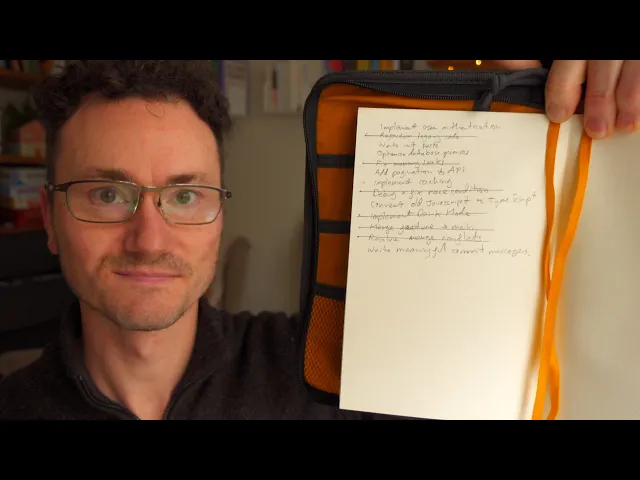 Implement user authentication
Refactor legacy code
Write unit tests
Optimize database queries
Fix memory leaks
Add pagination to API
Implement caching
Debug & fix race condition
Convert old Javascript to TypeScript
Implement Dark Mode
Merge feature → main
Resolve merge conflicts
Write meaningful commit messages.